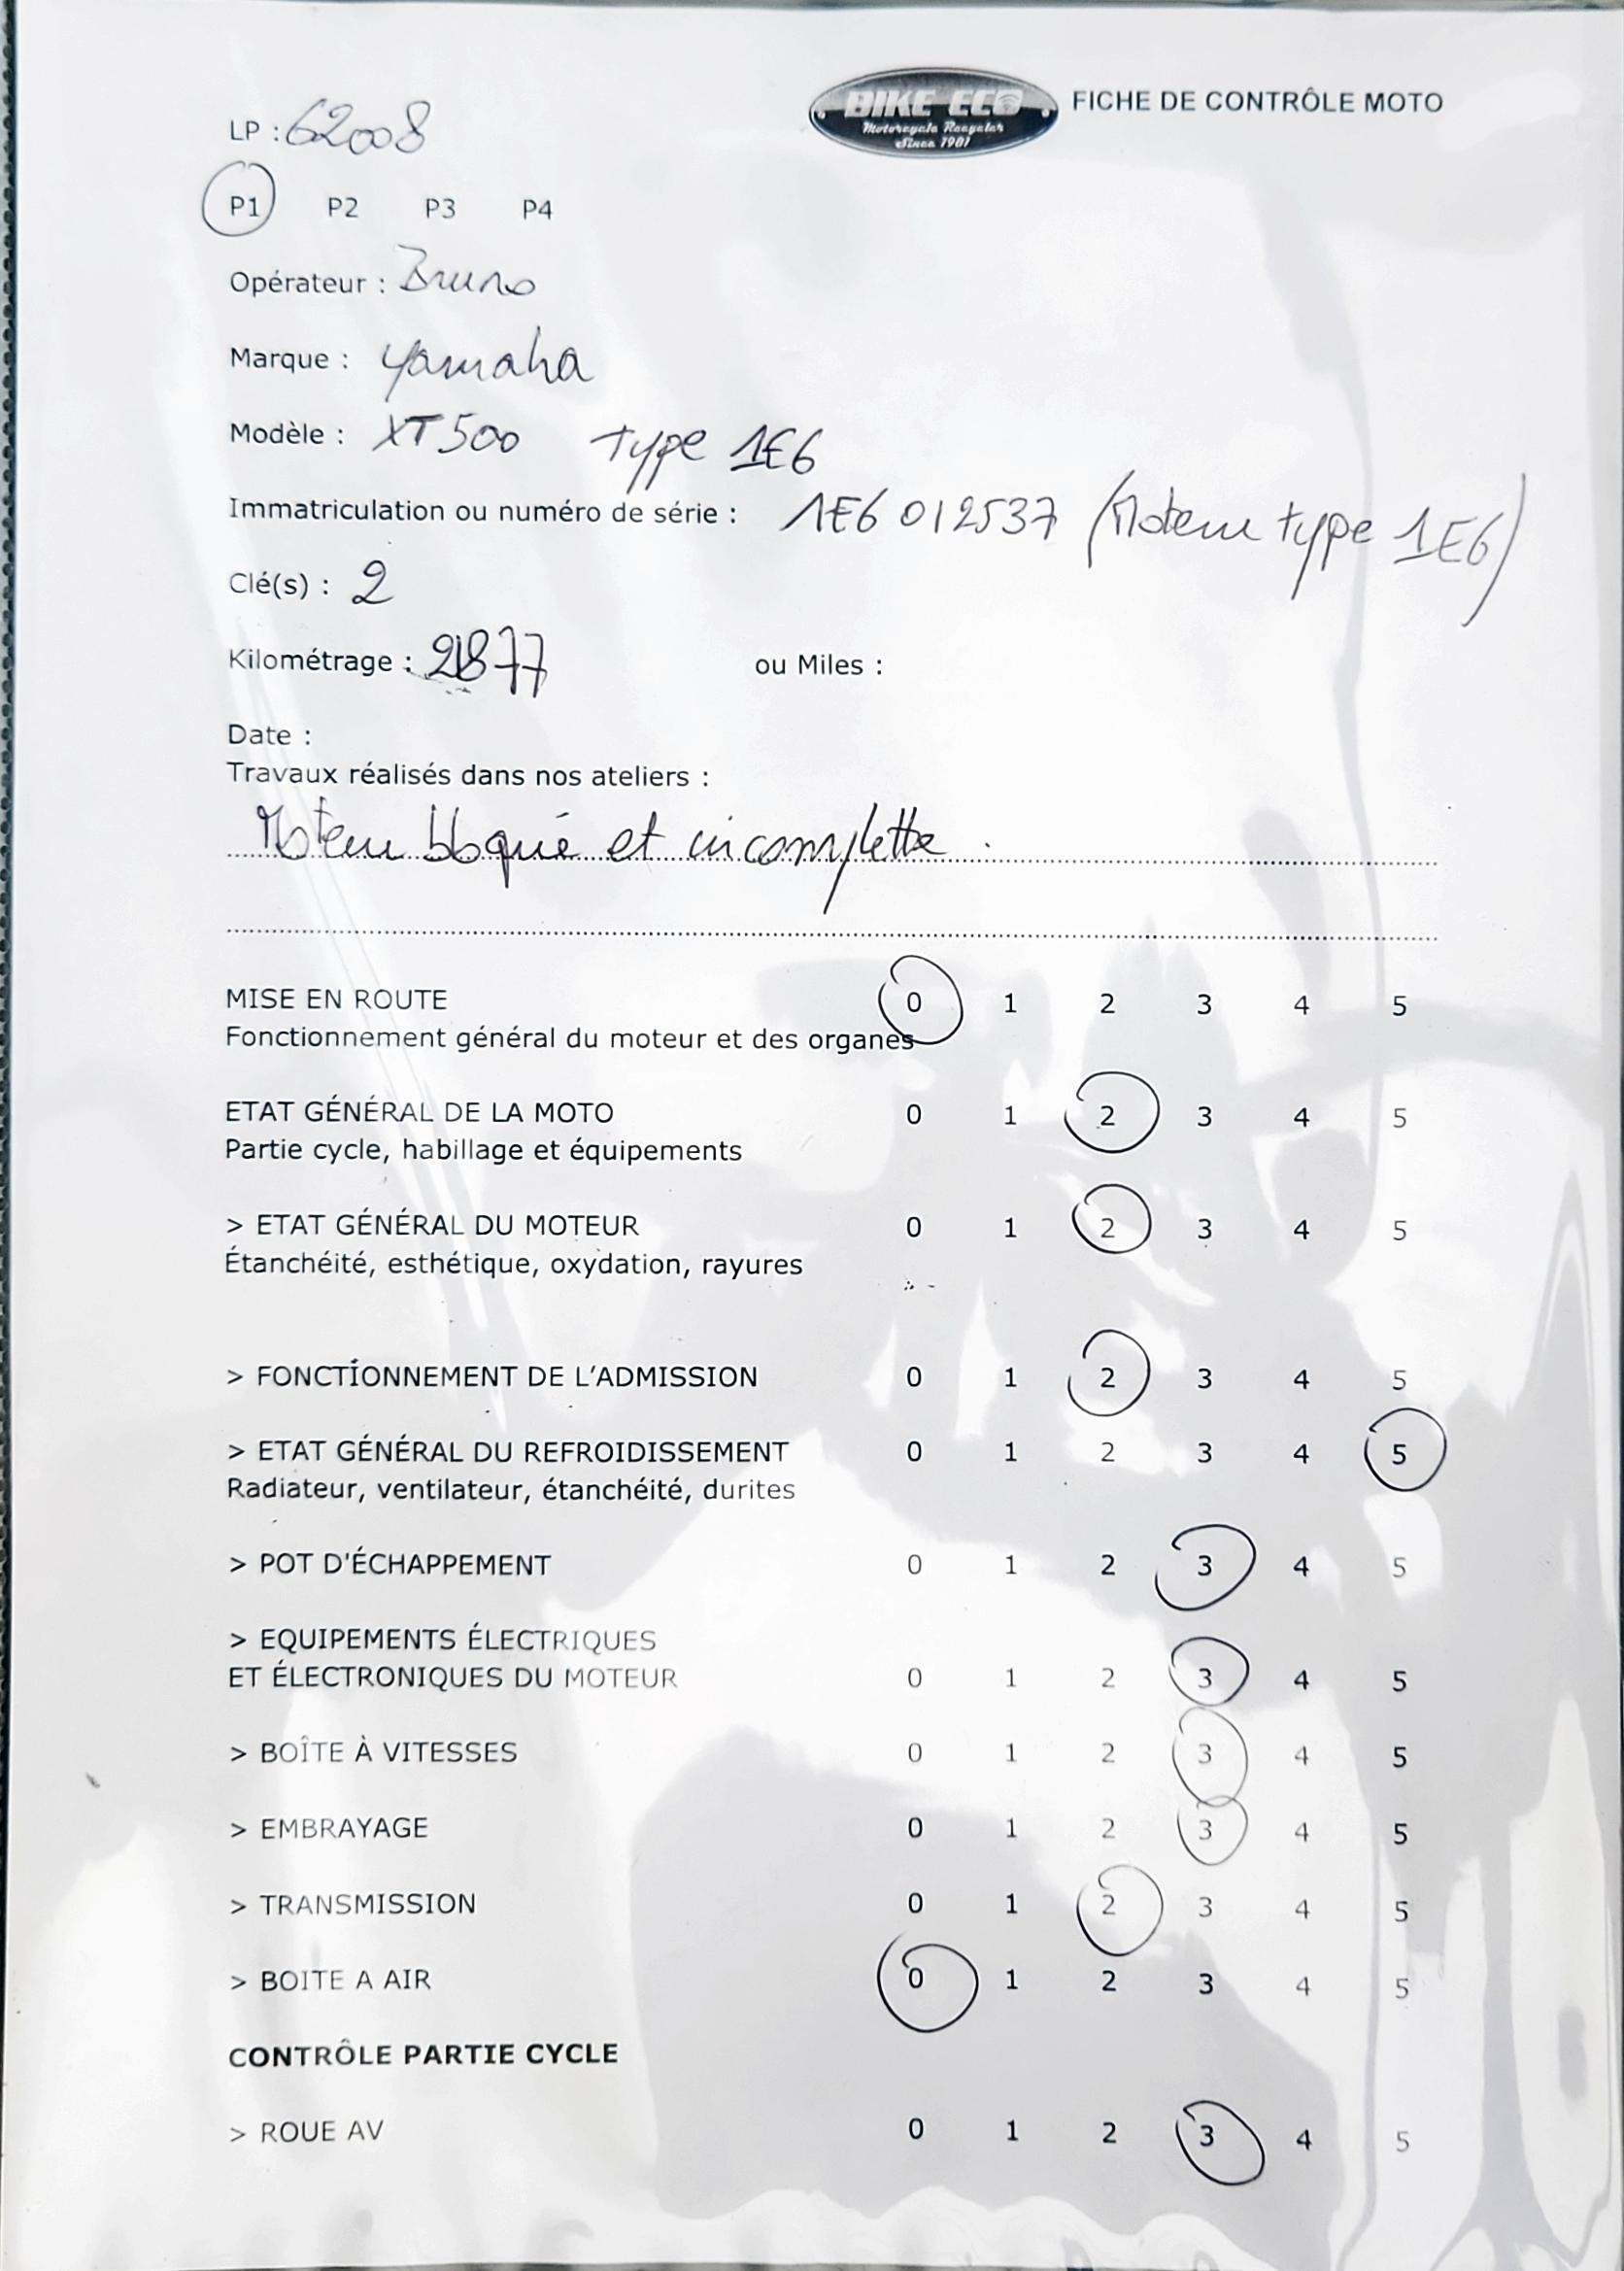 BIKE ECO
Motorcycle Recycler
Since 1981
FICHE DE CONTRÔLE MOTO
LP : 62008
P1 P2 P3 P4
Opérateur : Bruno
Marque : Yamaha
Modèle : XT500 Type 1E6
Immatriculation ou numéro de série : 1E6 012537 (Moteur type 1E6)
Clé(s) : 2
Kilométrage : 21877 ou Miles :
Date :
Travaux réalisés dans nos ateliers :
Moteur bloqué et incomplette.
MISE EN ROUTE 0 1 2 3 4 5
Fonctionnement général du moteur et des organes
ETAT GÉNÉRAL DE LA MOTO 0 1 2 3 4 5
Partie cycle, habillage et équipements
> ETAT GÉNÉRAL DU MOTEUR 0 1 2 3 4 5
Étanchéité, esthétique, oxydation, rayures
> FONCTIONNEMENT DE L'ADMISSION 0 1 2 3 4 5
> ETAT GÉNÉRAL DU REFROIDISSEMENT 0 1 2 3 4 5
Radiateur, ventilateur, étanchéité, durites
> POT D'ÉCHAPPEMENT 0 1 2 3 4 5
> EQUIPEMENTS ÉLECTRIQUES
ET ÉLECTRONIQUES DU MOTEUR 0 1 2 3 4 5
> BOÎTE À VITESSES 0 1 2 3 4 5
> EMBRAYAGE 0 1 2 3 4 5
> TRANSMISSION 0 1 2 3 4 5
> BOITE A AIR 0 1 2 3 4 5
CONTRÔLE PARTIE CYCLE
> ROUE AV 0 1 2 3 4 5